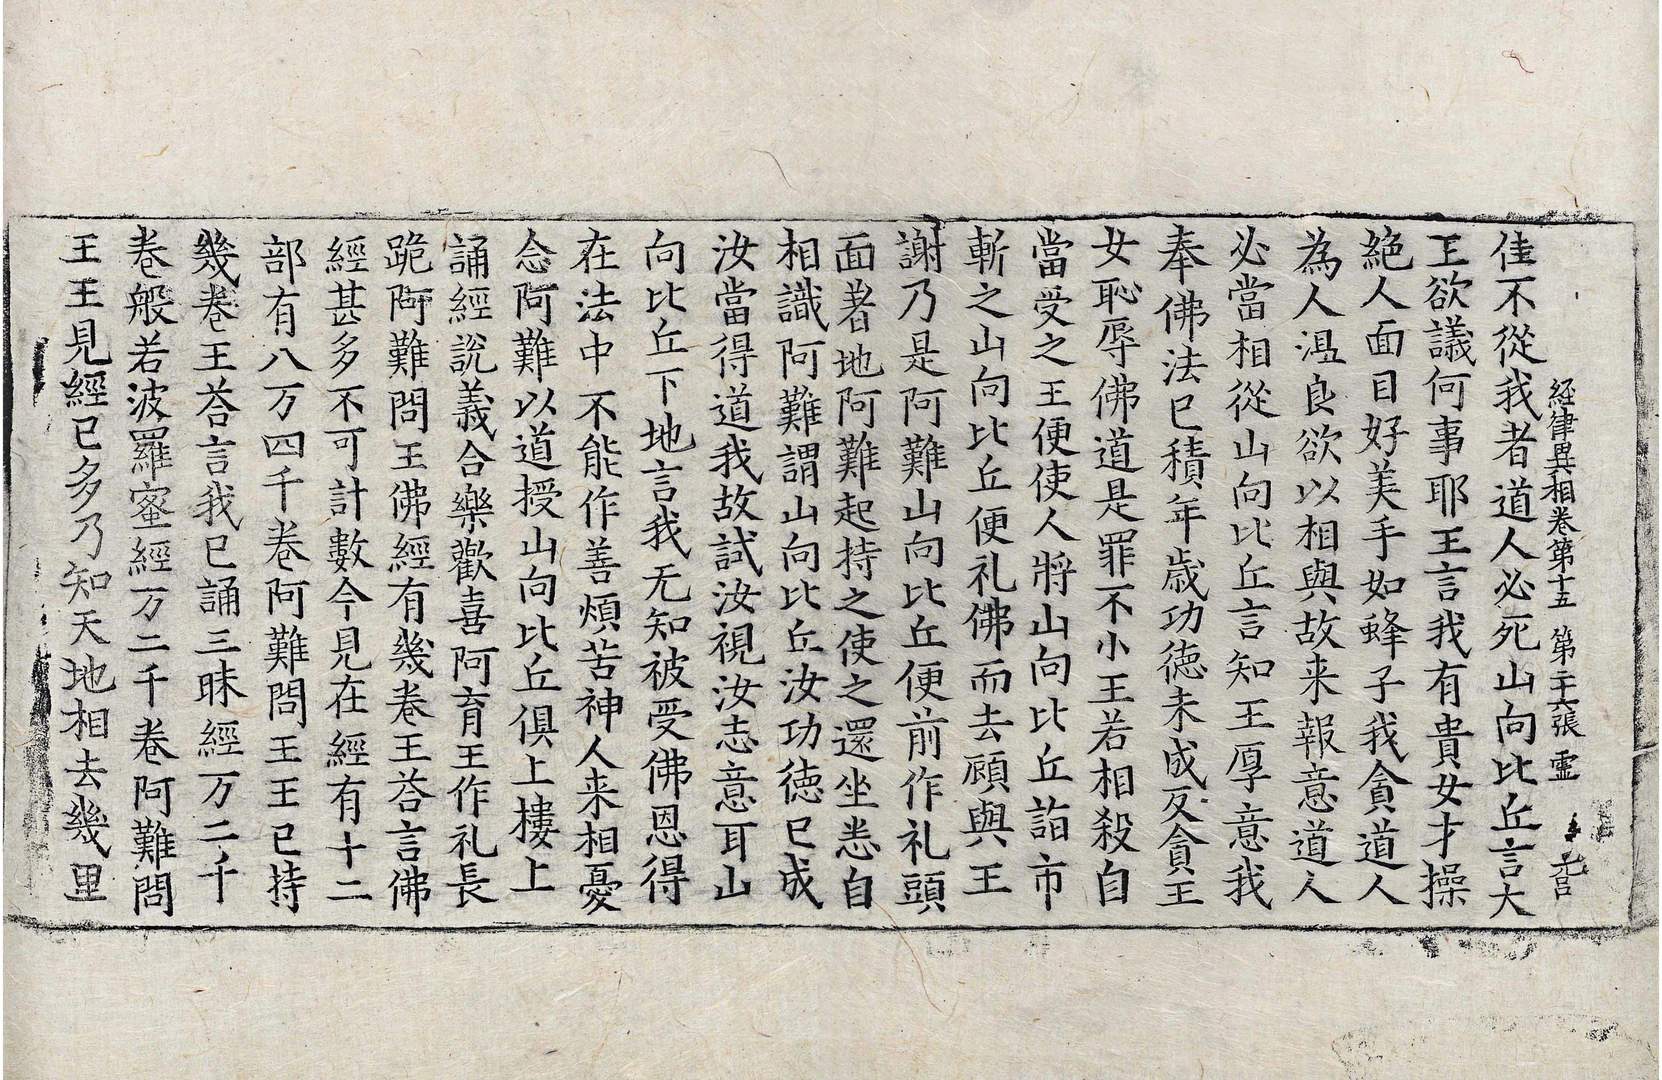 経律異相巻第十五 第二十六張 霊
佳不從我者道人必死山向比丘言大
王欲議何事耶王言我有貴女才操
絶人面目好美手如蜂子我貪道人
為人温良欲以相與故来報意道人
必當相從山向比丘言知王厚意我
奉佛法已積年歳功徳未成反貪王
女恥辱佛道是罪不小王若相殺自
當受之王便使人將山向比丘詣市
斬之山向比丘便礼佛而去顧與王
謝乃是阿難山向比丘便前作礼頭
面著地阿難起持之使之還坐恙自
相識阿難謂山向比丘汝功徳已成
汝當得道我故試汝視汝志意耳山
向比丘下地言我无知被受佛恩得
在法中不能作善煩苦神人来相憂
念阿難以道授山向比丘俱上樓上
誦經説義合樂歡喜阿育王作礼長
跪阿難問王佛經有幾巻王荅言佛
經甚多不可計數今見在經有十二
部有八万四千巻阿難問王王已持
幾巻王荅言我已誦三昧經万二千
巻般若波羅蜜經万二千巻阿難問
王王見經已多乃知天地相去幾里